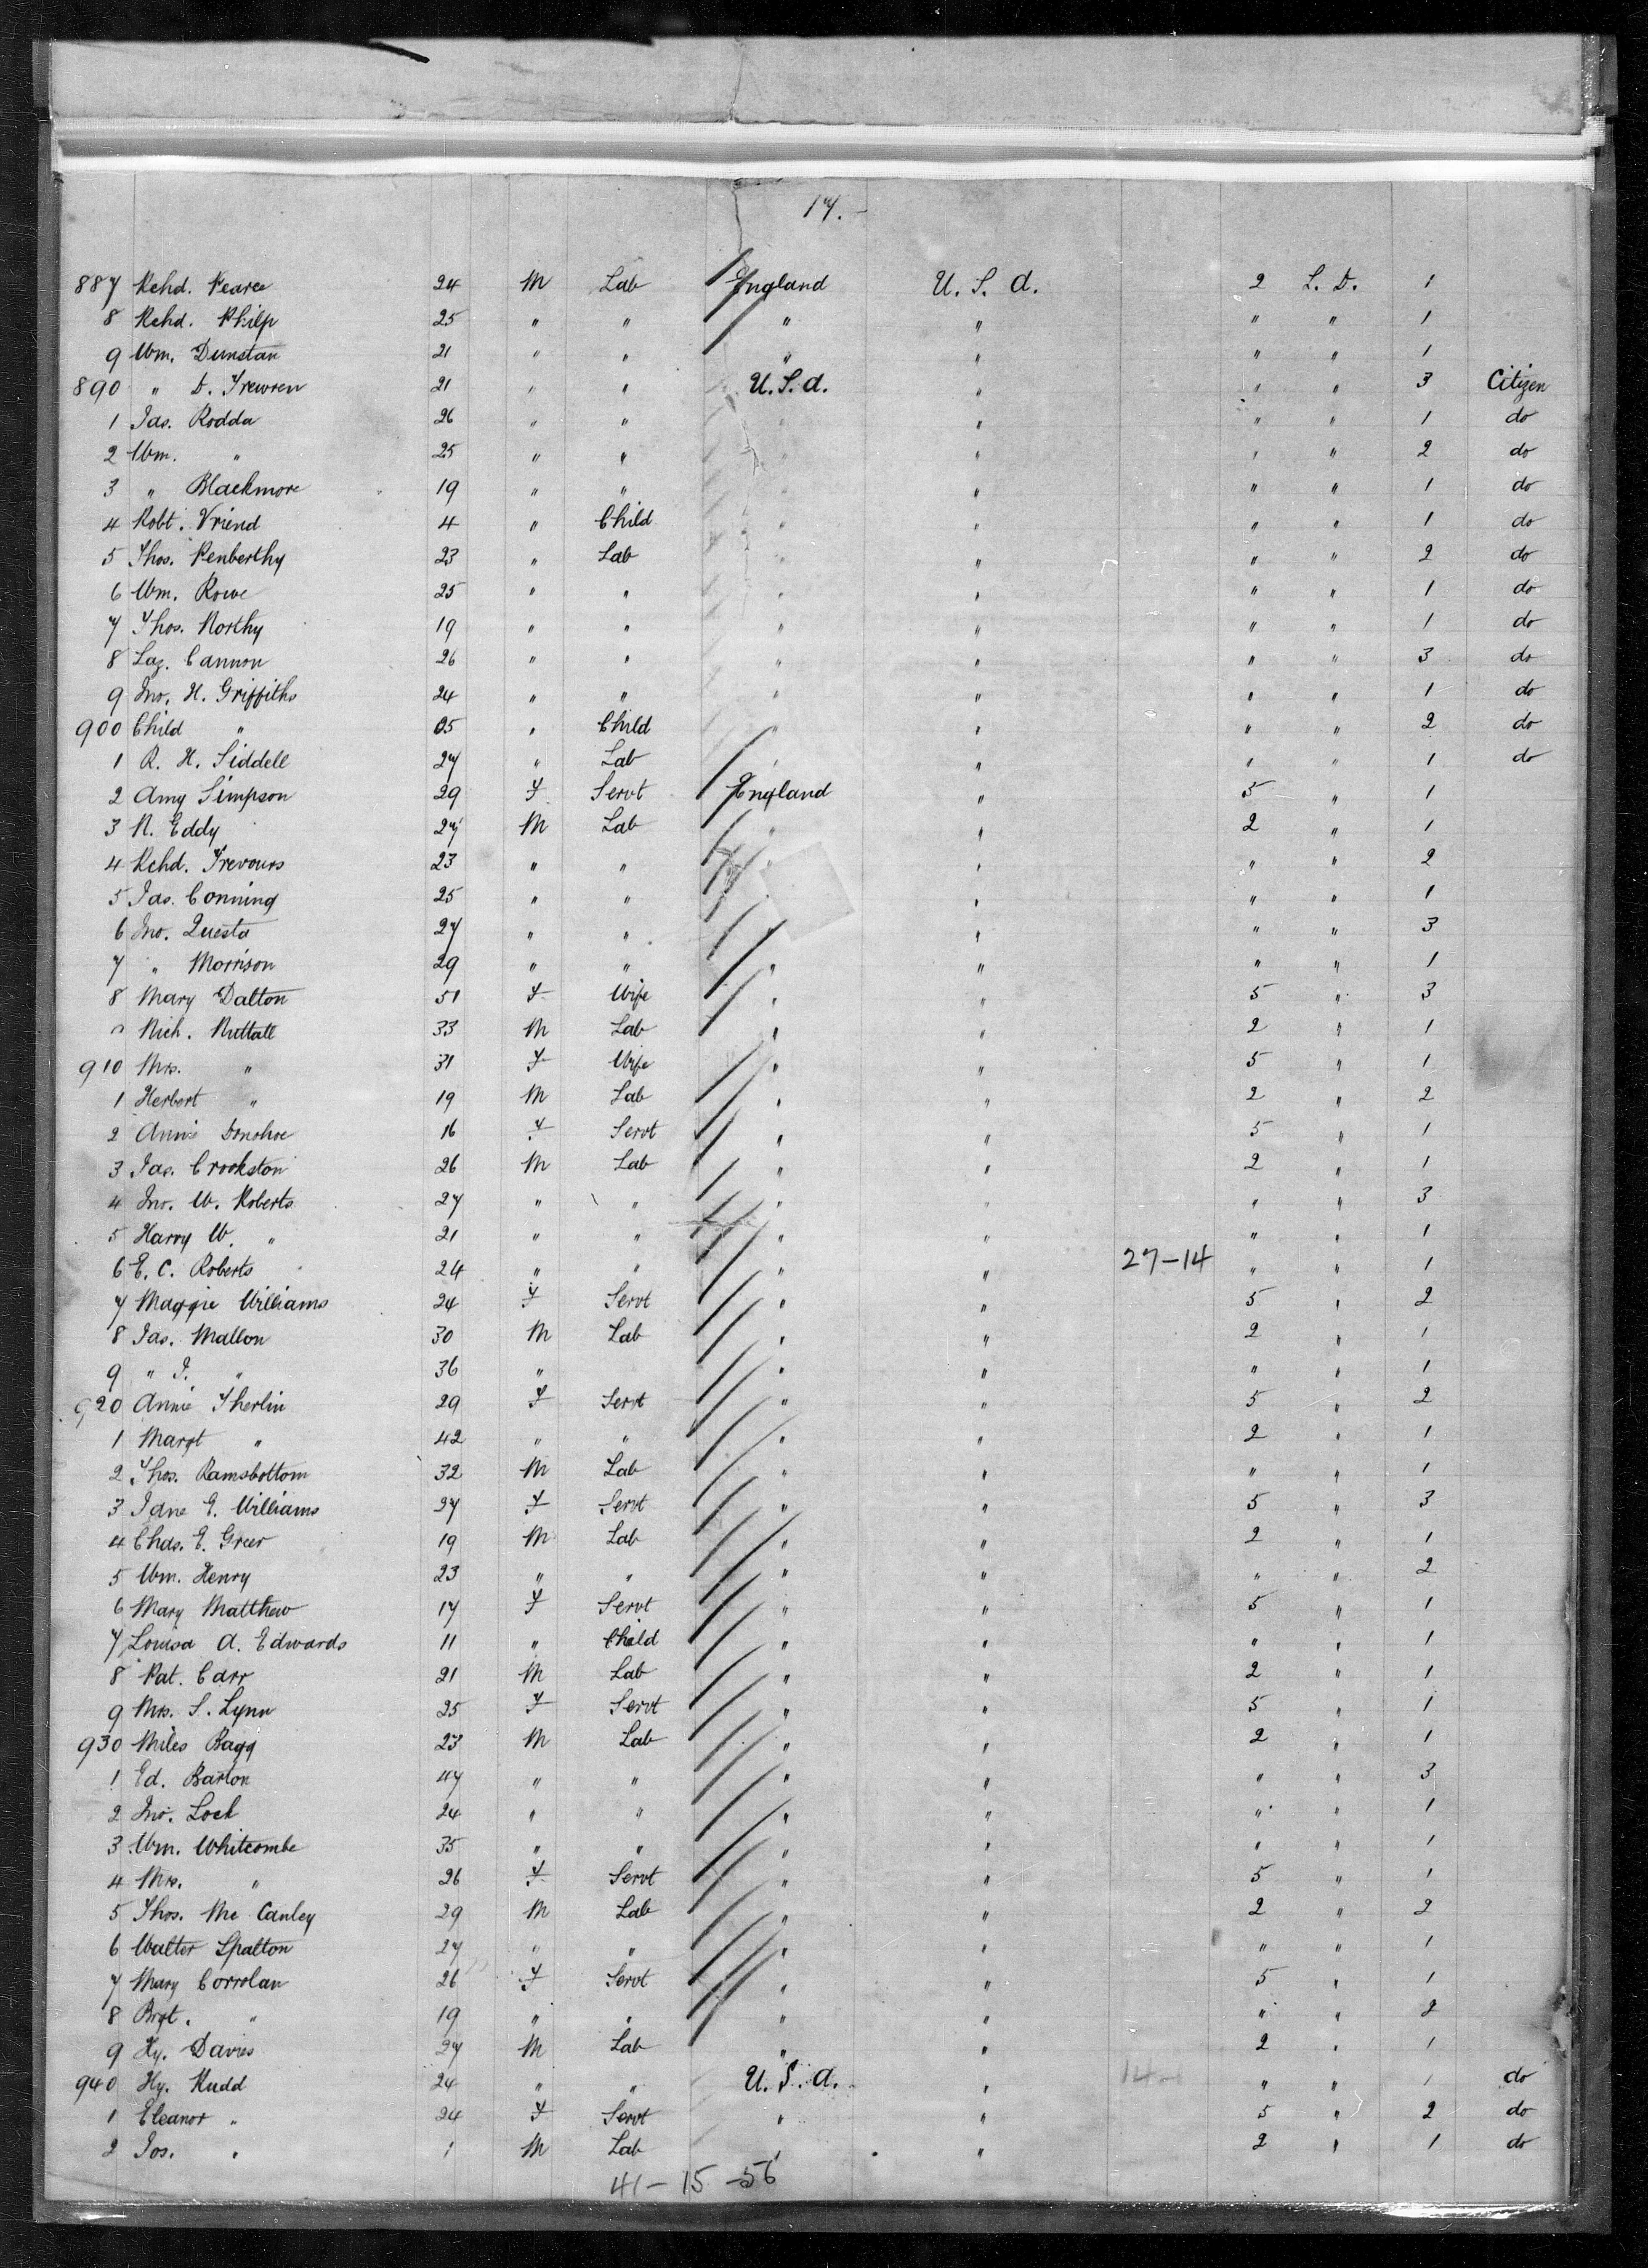 17.-
887 Rchd. Pearce 24 M Lab England U. S. A. 2 L. D. 1
8 Rchd. Philp 25 " " " " " " 1
9 Wm. Dunstan 21 " " " " " " 1
890 " D. Trewren 21 " " U. S. A. " " " 3 Citizen
1 Jas. Rodda 26 " " " " " " 1 do
2 Wm. " 25 " " " " " " 2 do
3 " Blackmore 19 " " " " " " 1 do
4 Robt. Vriend 4 " Child " " " " 1 do
5 Thos. Penberthy 23 " Lab " " " " 2 do
6 Wm. Rowe 25 " " " " " " 1 do
7 Thos. Northy 19 " " " " " " 1 do
8 Laz. Cannon 26 " " " " " " 3 do
9 Jno. H. Griffiths 24 " " " " " " 1 do
900 Child " 05 " Child " " " " 2 do
1 R. H. Siddell 27 " Lab " " " " 1 do
2 Amy Simpson 29 F Servt England " 5 " 1
3 N. Eddy 27 M Lab " " 2 " 1
4 Rchd. Trevours 23 " " " " " " 2
5 Jas. Conning 25 " " " " " " 1
6 Jno. Questa 27 " " " " " " 3
7 " Morrison 29 " " " " " " 1
8 Mary Dalton 51 F Wife " " 5 " 3
Nich. Nuttall 33 M Lab " " 2 " 1
910 Mrs. " 31 F Wife " " 5 " 1
1 Herbert " 19 M Lab " " 2 " 2
2 Annie Donohoe 16 F Servt " " 5 " 1
3 Jas. Crookston 26 M Lab " " 2 " 1
4 Jno. W. Roberts 27 " " " " " " 3
5 Harry W. " 21 " " " " " " 1
6 E. C. Roberts 24 " " " " 27-14 " " 1
7 Maggie Williams 24 F Servt " " 5 " 2
8 Jas. Mallon 30 M Lab " " 2 " 1
9 " J. " 36 " " " " " 1
920 Annie Therlin 29 F Servt " " 5 " 2
1 Margt " 42 " " " " 2 " 1
2 Thos. Ramsbottom 32 M Lab " " " " 1
3 Jane E. Williams 27 F Servt " " 5 " 3
4 Chas. E. Greer 19 M Lab " " 2 " 1
5 Wm. Henry 23 " " " " " " 2
6 Mary Matthew 17 F Servt " " 5 " 1
7 Louisa A. Edwards 11 " Child " " " " 1
8 Pat. Carr 21 M Lab " " 2 " 1
9 Mrs. S. Lynn 25 F Servt " " 5 " 1
930 Miles Bagg 23 M Lab " " 2 " 1
1 Ed. Barton 47 " " " " " " 3
2 Jno. Lock 24 " " " " " " 1
3 Wm. Whitcombe 35 " " " " " " 1
4 Mrs. " 26 F Servt " " 5 " 1
5 Thos. Mc Canley 29 M Lab " " 2 " 2
6 Walter Spalton 27 " " " " " " 1
7 Mary Corrolan 26 F Servt " " 5 " 1
8 Brgt. " 19 " " " " " " 2
9 Hy. Davies 27 M Lab " " 2 " 1
940 Hy. Rudd 24 " " U. S. A. " 14- " " 1 do
1 Eleanor " 24 F Servt " " 5 " 2 do
2 Jos. " 1 M Lab " " 2 " 1 do
41-15-56